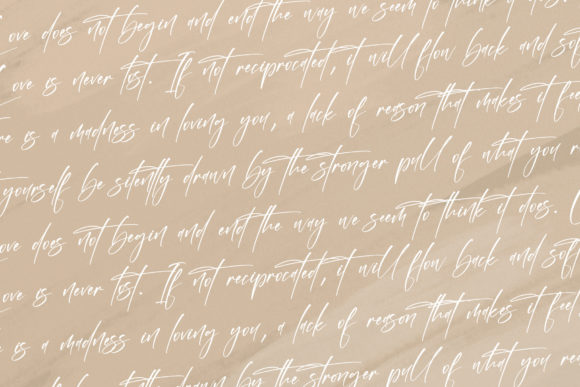 ove does not begin and end the way we seem to think it does
ove is never lost. If not reciprocated, it will flow back and soft
re is a madness in loving you, a lack of reason that makes it feel
yourself be silently drawn by the stronger pull of what you r
ove does not begin and end the way we seem to think it does.
ove is never lost. If not reciprocated, it will flow back and soft
re is a madness in loving you, a lack of reason that makes it feel
yourself be silently drawn by the stronger pull of what you re